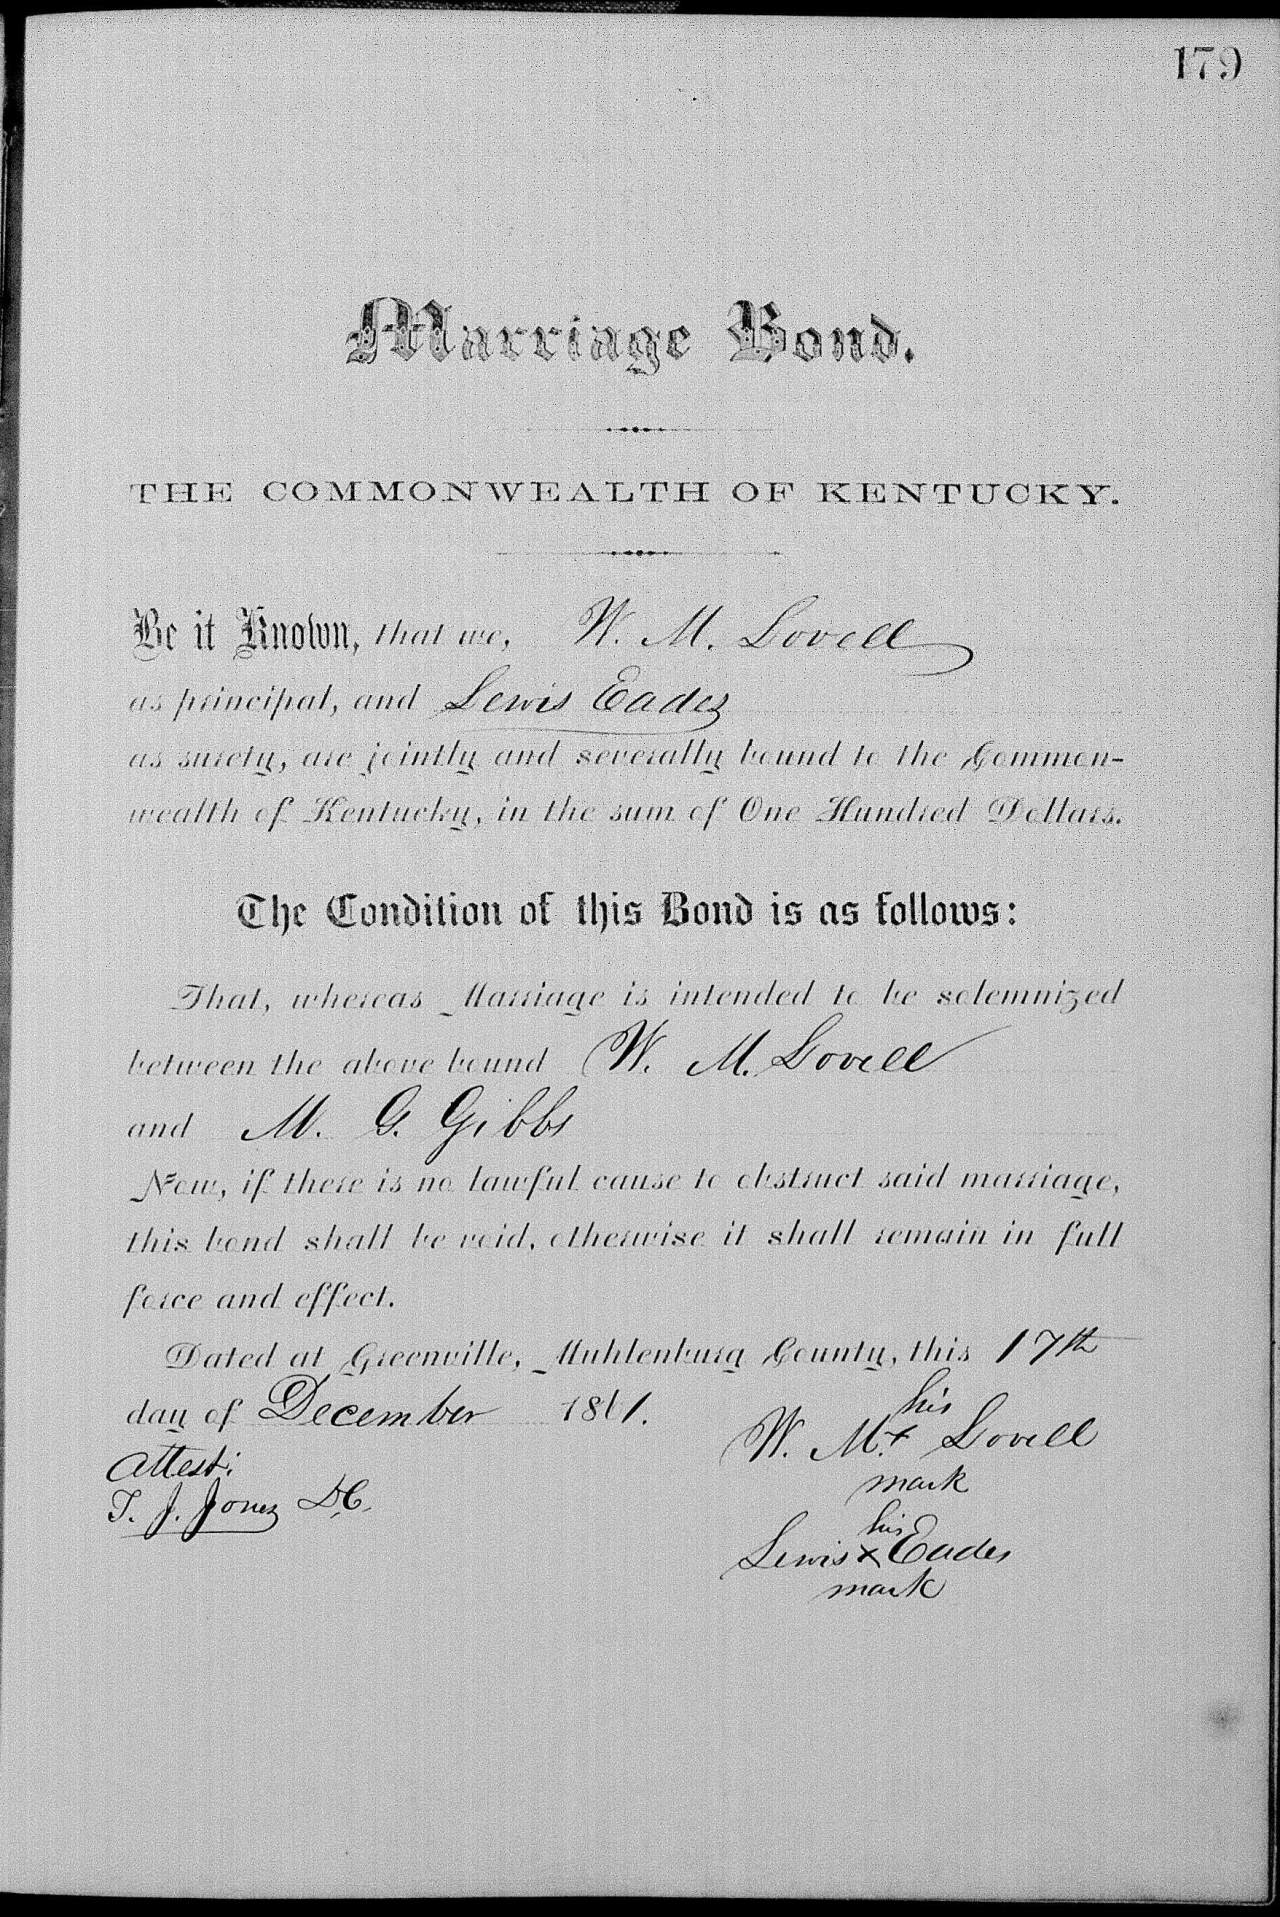 179
Marriage Bond.
THE COMMONWEALTH OF KENTUCKY.
Be it Known, that we, W. M. Lovell
as principal, and Lewis Eades
as surety, are jointly and severally bound to the Common-
wealth of Kentucky, in the sum of One Hundred Dollars.
The Condition of this Bond is as follows:
That, whereas Marriage is intended to be solemnized
between the above bound W. M. Lovell
and M. G. Gibbs
Now, if there is no lawful cause to obstruct said marriage,
this bond shall be void, otherwise it shall remain in full
force and effect.
Dated at Greenville, Muhlenburg County, this 17th
day of December 1861.
his
W. M. x Lovell
mark
Attest:
T. J. Jones D.C.
his
Lewis x Eades
mark